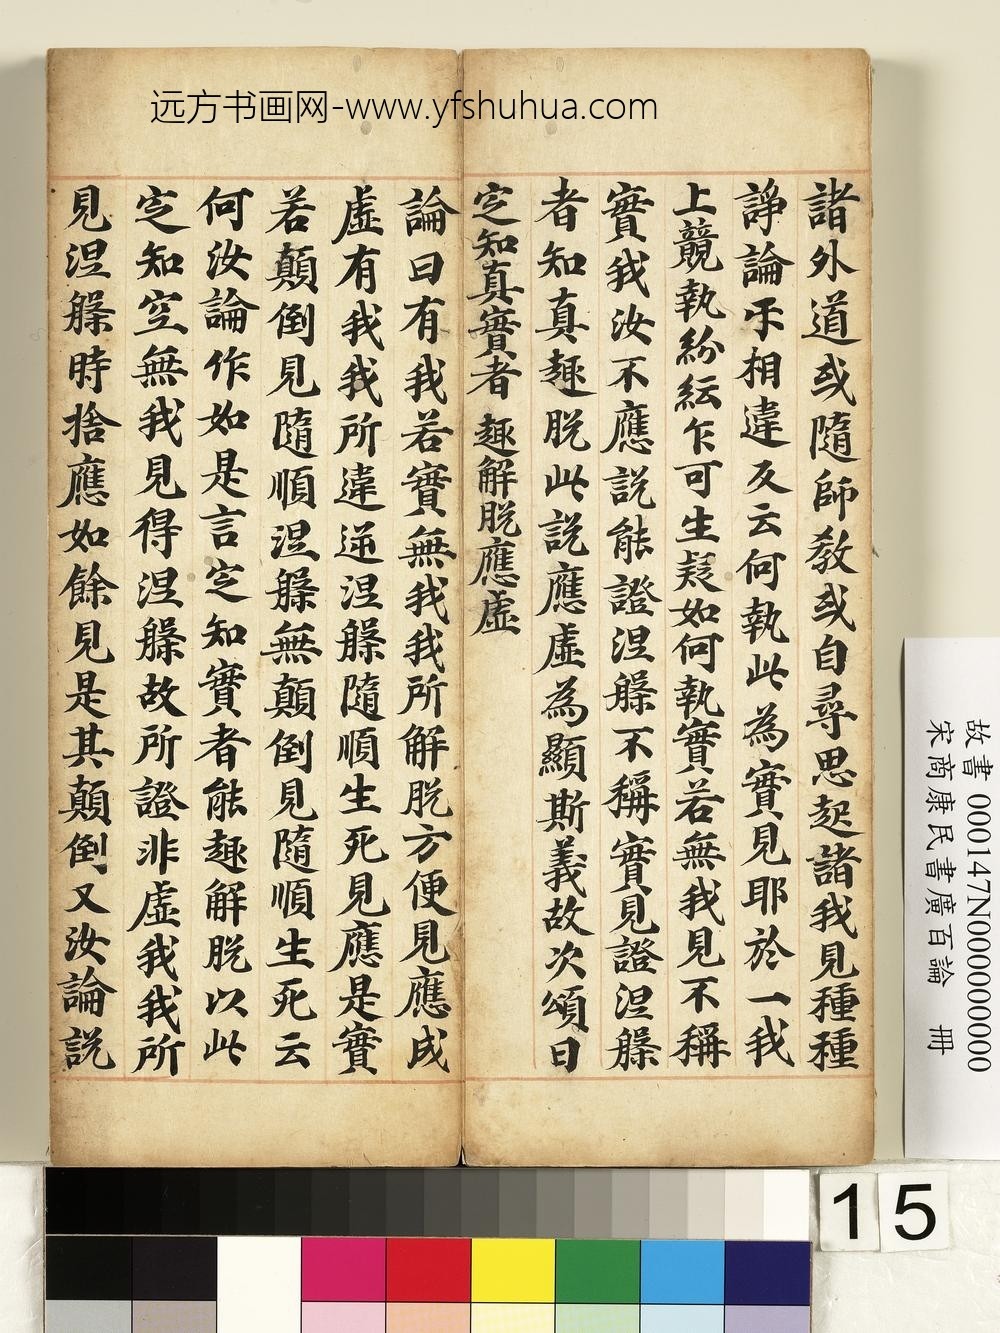 远方书画网-www.yfshuhua.com
諸外道或隨師教或自尋思起諸我見種種
諍論乎相違反云何執此為實見耶於一我
上競執紛紜乍可生疑如何執實若無我見不稱
實我汝不應説能證涅槃不稱實見證涅槃
者知真趣脫此説應虛為顯斯義故次頌曰
定知真實者 趣解脫應虛
論曰有我若實無我我所解脫方便見應成
虛有我我所違逆涅槃隨順生死見應是實
若顛倒見隨順涅槃無顛倒見隨順生死云
何汝論作如是言定知實者能趣解脫以此
定知空無我見得涅槃故所證非虛我我所
見涅槃時捨應如餘見是其顛倒又汝論説
故書 000147N000000000
宋商康民書廣百論 冊
15